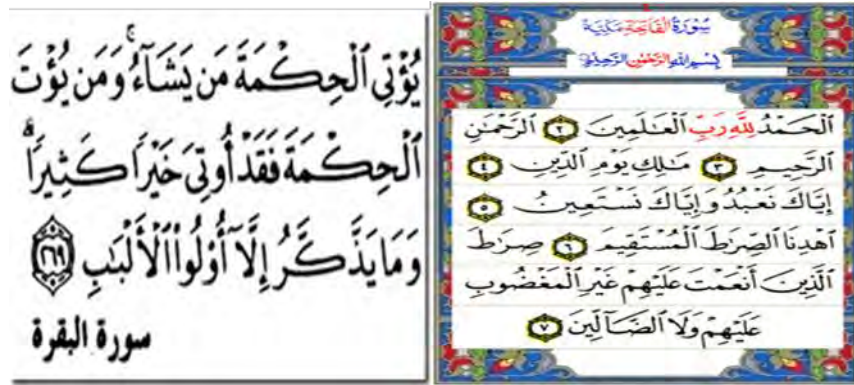 يُؤْتِي ٱلْحِكْمَةَ مَن يَشَآءُ ۚ وَمَن يُؤْتَ
ٱلْحِكْمَةَ فَقَدْ أُوتِيَ خَيْرًا كَثِيرًا ۗ
وَمَا يَذَّكَّرُ إِلَّآ أُو۟لُوا۟ ٱلْأَلْبَٰبِ ٢٦٩
سورة البقرة
سُورَةُ الْفَاتِحَةِ مَكِّيَّة
بِسْمِ اللَّهِ الرَّحْمَٰنِ الرَّحِيمِ
ٱلْحَمْدُ لِلَّهِ رَبِّ ٱلْعَٰلَمِينَ ٢ ٱلرَّحْمَٰنِ
ٱلرَّحِيمِ ٣ مَٰلِكِ يَوْمِ ٱلدِّينِ ٤
إِيَّاكَ نَعْبُدُ وَإِيَّاكَ نَسْتَعِينُ ٥
ٱهْدِنَا ٱلصِّرَٰطَ ٱلْمُسْتَقِيمَ ٦ صِرَٰطَ
ٱلَّذِينَ أَنْعَمْتَ عَلَيْهِمْ غَيْرِ ٱلْمَغْضُوبِ
عَلَيْهِمْ وَلَا ٱلضَّآلِّينَ ٧